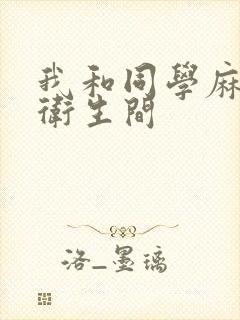 我和同學麻
衛生間
洛_墨璃